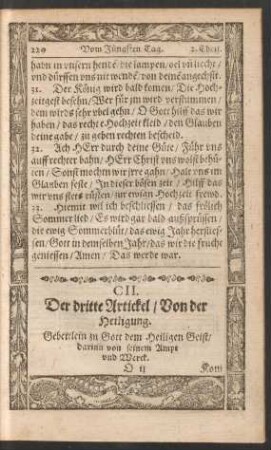 220 Vom Jüngsten Tag. 2. Theil.
habn in unsern hende die lampen/ oel vñ liecht/
vnd dürffen vns nit wende von deinē angesicht.
31. Der König wird bald komen/ Die Hoch-
zeitgest besehn/ Wer für jm wird verstummen/
dem wirds sehr vbel gehn/ O Gott hilff das wir
haben/ das recht Hochzeit kleid/ den Glauben
deine gabe/ zu geben rechten bescheid.
32. Ach HErr durch deine Güte/ Führ vns
auff rechter bahn/ HErr Christ vns wolst behü-
ten/ Sonst möchten wir jrre gahn/ Halt vns im
Glauben feste/ In dieser bösen zeit/ Hilff das
wir vns stets rüsten/ zur ewigen Hochzeit frewd.
33. Hiemit wil ich beschliessen/ das frölich
Sommer lied/ Es wird gar bald außsprüssen/
die ewig Sommerblüt/ das ewig Jahr herflies-
sen/ Gott in demselben Jahr/ das wir die frucht
geniessen/ Amen/ Das werde war.
CII.
Der dritte Artickel/ Von der
Heiligung.
Gebetlein zu Gott dem Heiligen Geist/
darinn von seinem Ampt
vnd Werck.
O ij Kom